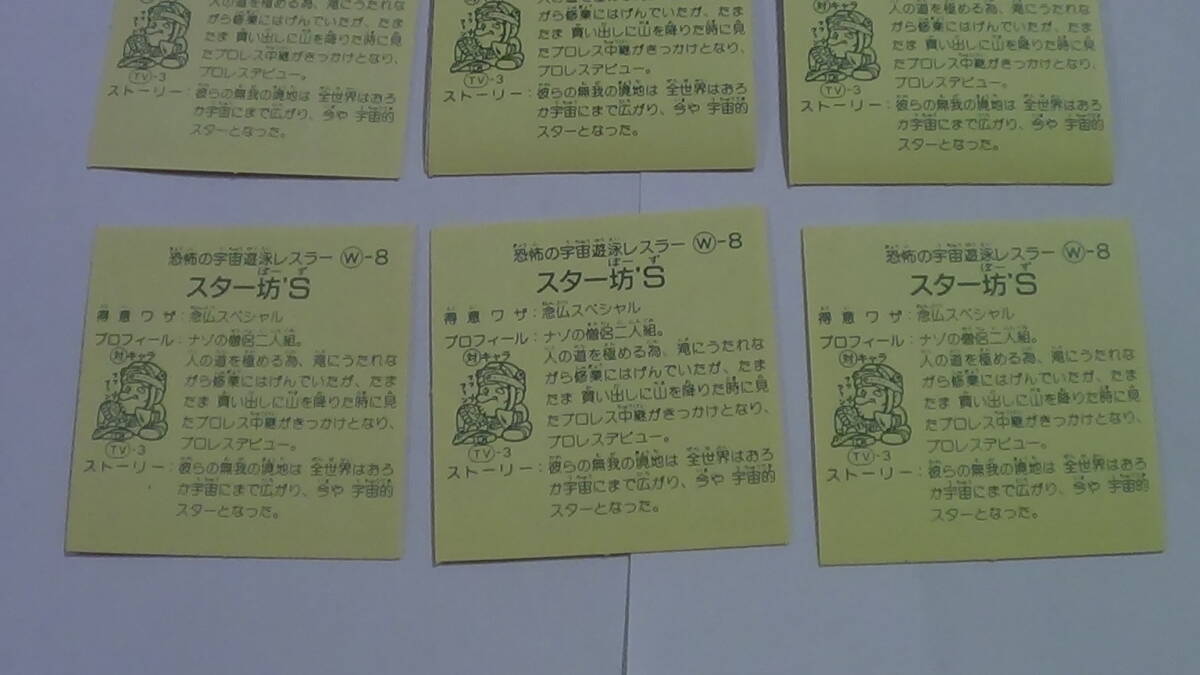 人の道を極める為、滝にうたれな
がら修業にはげんでいたが、たま
たま 買い出しに山を降りた時に見
たプロレス中継がきっかけとなり、
プロレスデビュー。
TV-3
ストーリー：彼らの無我の境地は 全世界はおろ
か宇宙にまで広がり、今や 宇宙的
スターとなった。
対キャラ
人の道を極める為、滝にうたれな
がら修業にはげんでいたが、たま
たま 買い出しに山を降りた時に見
たプロレス中継がきっかけとなり、
プロレスデビュー。
TV-3
ストーリー：彼らの無我の境地は 全世界はおろ
か宇宙にまで広がり、今や 宇宙的
スターとなった。
対キャラ
人の道を極める為、滝にうたれな
がら修業にはげんでいたが、たま
たま 買い出しに山を降りた時に見
たプロレス中継がきっかけとなり、
プロレスデビュー。
TV-3
ストーリー：彼らの無我の境地は 全世界はおろ
か宇宙にまで広がり、今や 宇宙的
スターとなった。
恐怖の宇宙遊泳レスラー W-8
ぼーず
スター坊'S
得意ワザ：念仏スペシャル
プロフィール：ナゾの僧侶二人組。
対キャラ
人の道を極める為、滝にうたれな
がら修業にはげんでいたが、たま
たま 買い出しに山を降りた時に見
たプロレス中継がきっかけとなり、
プロレスデビュー。
TV-3
ストーリー：彼らの無我の境地は 全世界はおろ
か宇宙にまで広がり、今や 宇宙的
スターとなった。
恐怖の宇宙遊泳レスラー W-8
ぼーず
スター坊'S
得意ワザ：念仏スペシャル
プロフィール：ナゾの僧侶二人組。
対キャラ
人の道を極める為、滝にうたれな
がら修業にはげんでいたが、たま
たま 買い出しに山を降りた時に見
たプロレス中継がきっかけとなり、
プロレスデビュー。
TV-3
ストーリー：彼らの無我の境地は 全世界はおろ
か宇宙にまで広がり、今や 宇宙的
スターとなった。
恐怖の宇宙遊泳レスラー W-8
ぼーず
スター坊'S
得意ワザ：念仏スペシャル
プロフィール：ナゾの僧侶二人組。
対キャラ
人の道を極める為、滝にうたれな
がら修業にはげんでいたが、たま
たま 買い出しに山を降りた時に見
たプロレス中継がきっかけとなり、
プロレスデビュー。
TV-3
ストーリー：彼らの無我の境地は 全世界はおろ
か宇宙にまで広がり、今や 宇宙的
スターとなった。